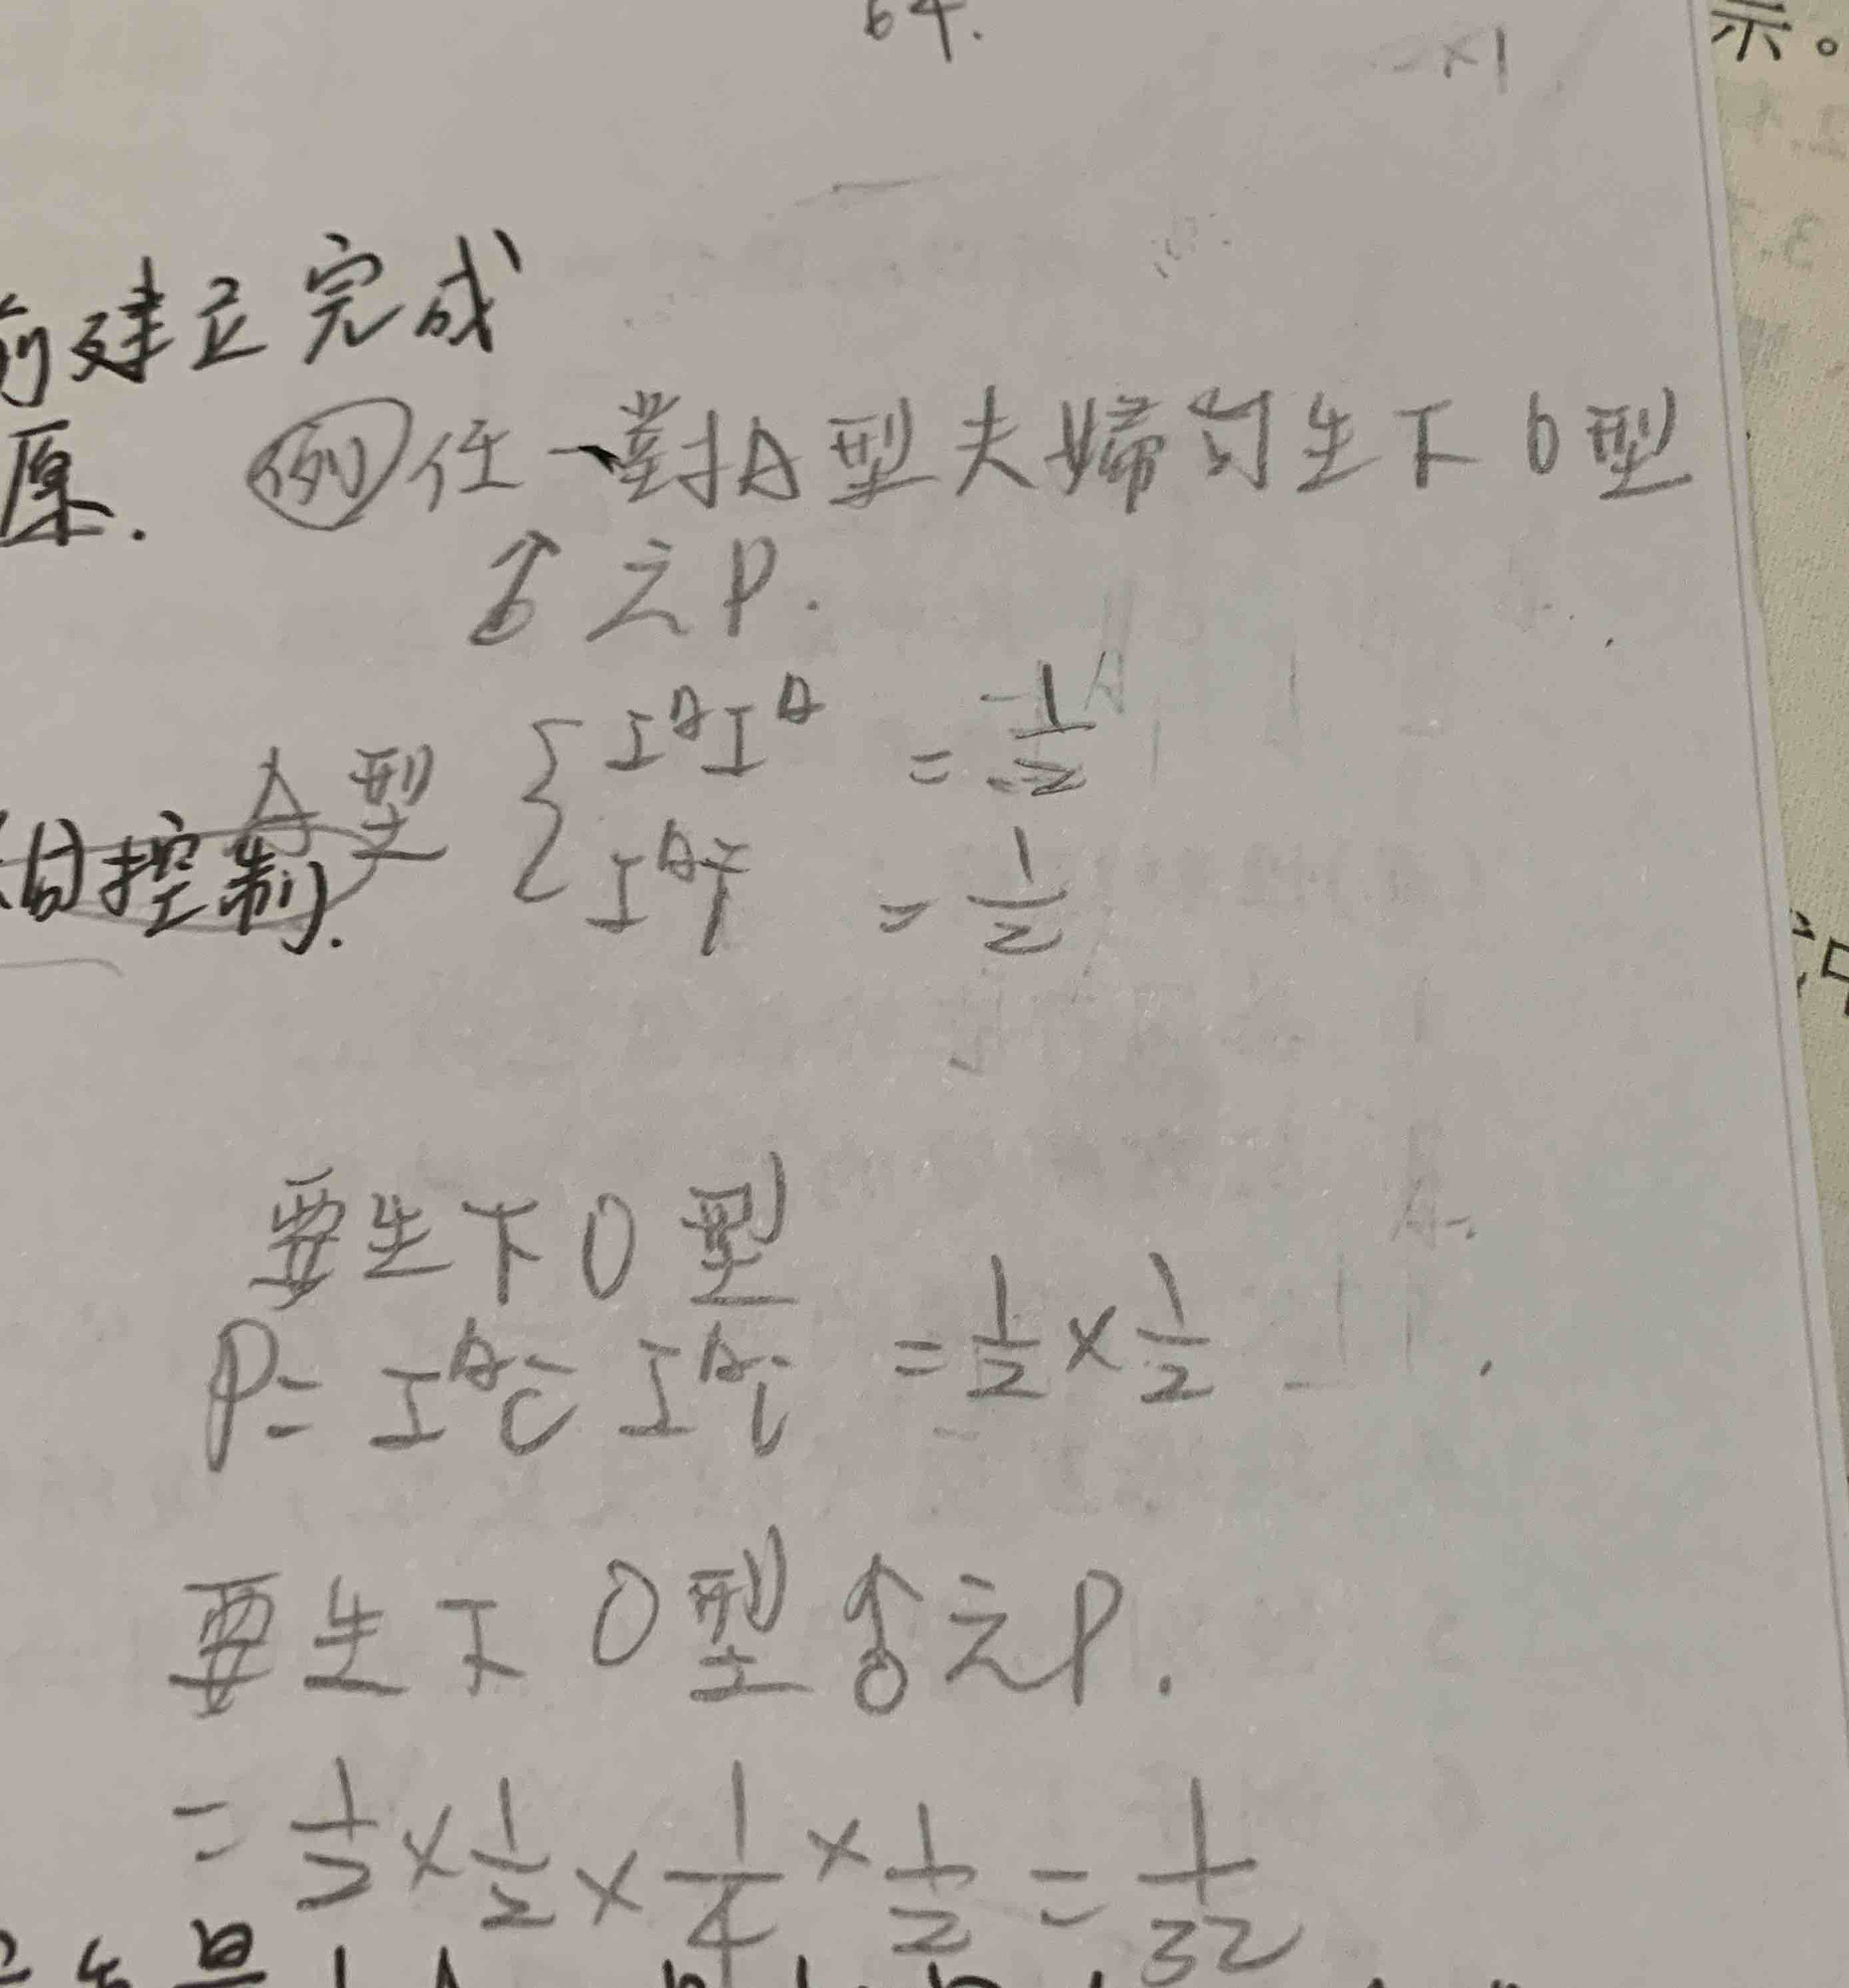 64.
×1
示。
前建立完成
原. 例 任一對A型夫婦可生下O型
♂之P.
A型 { I^A I^A = 1/2
I^A i = 1/2
控制.
要生下O型
P= I^A i I^A i = 1/2 × 1/2
要生下O型♂之P.
= 1/2 × 1/2 × 1/4 × 1/2 = 1/32